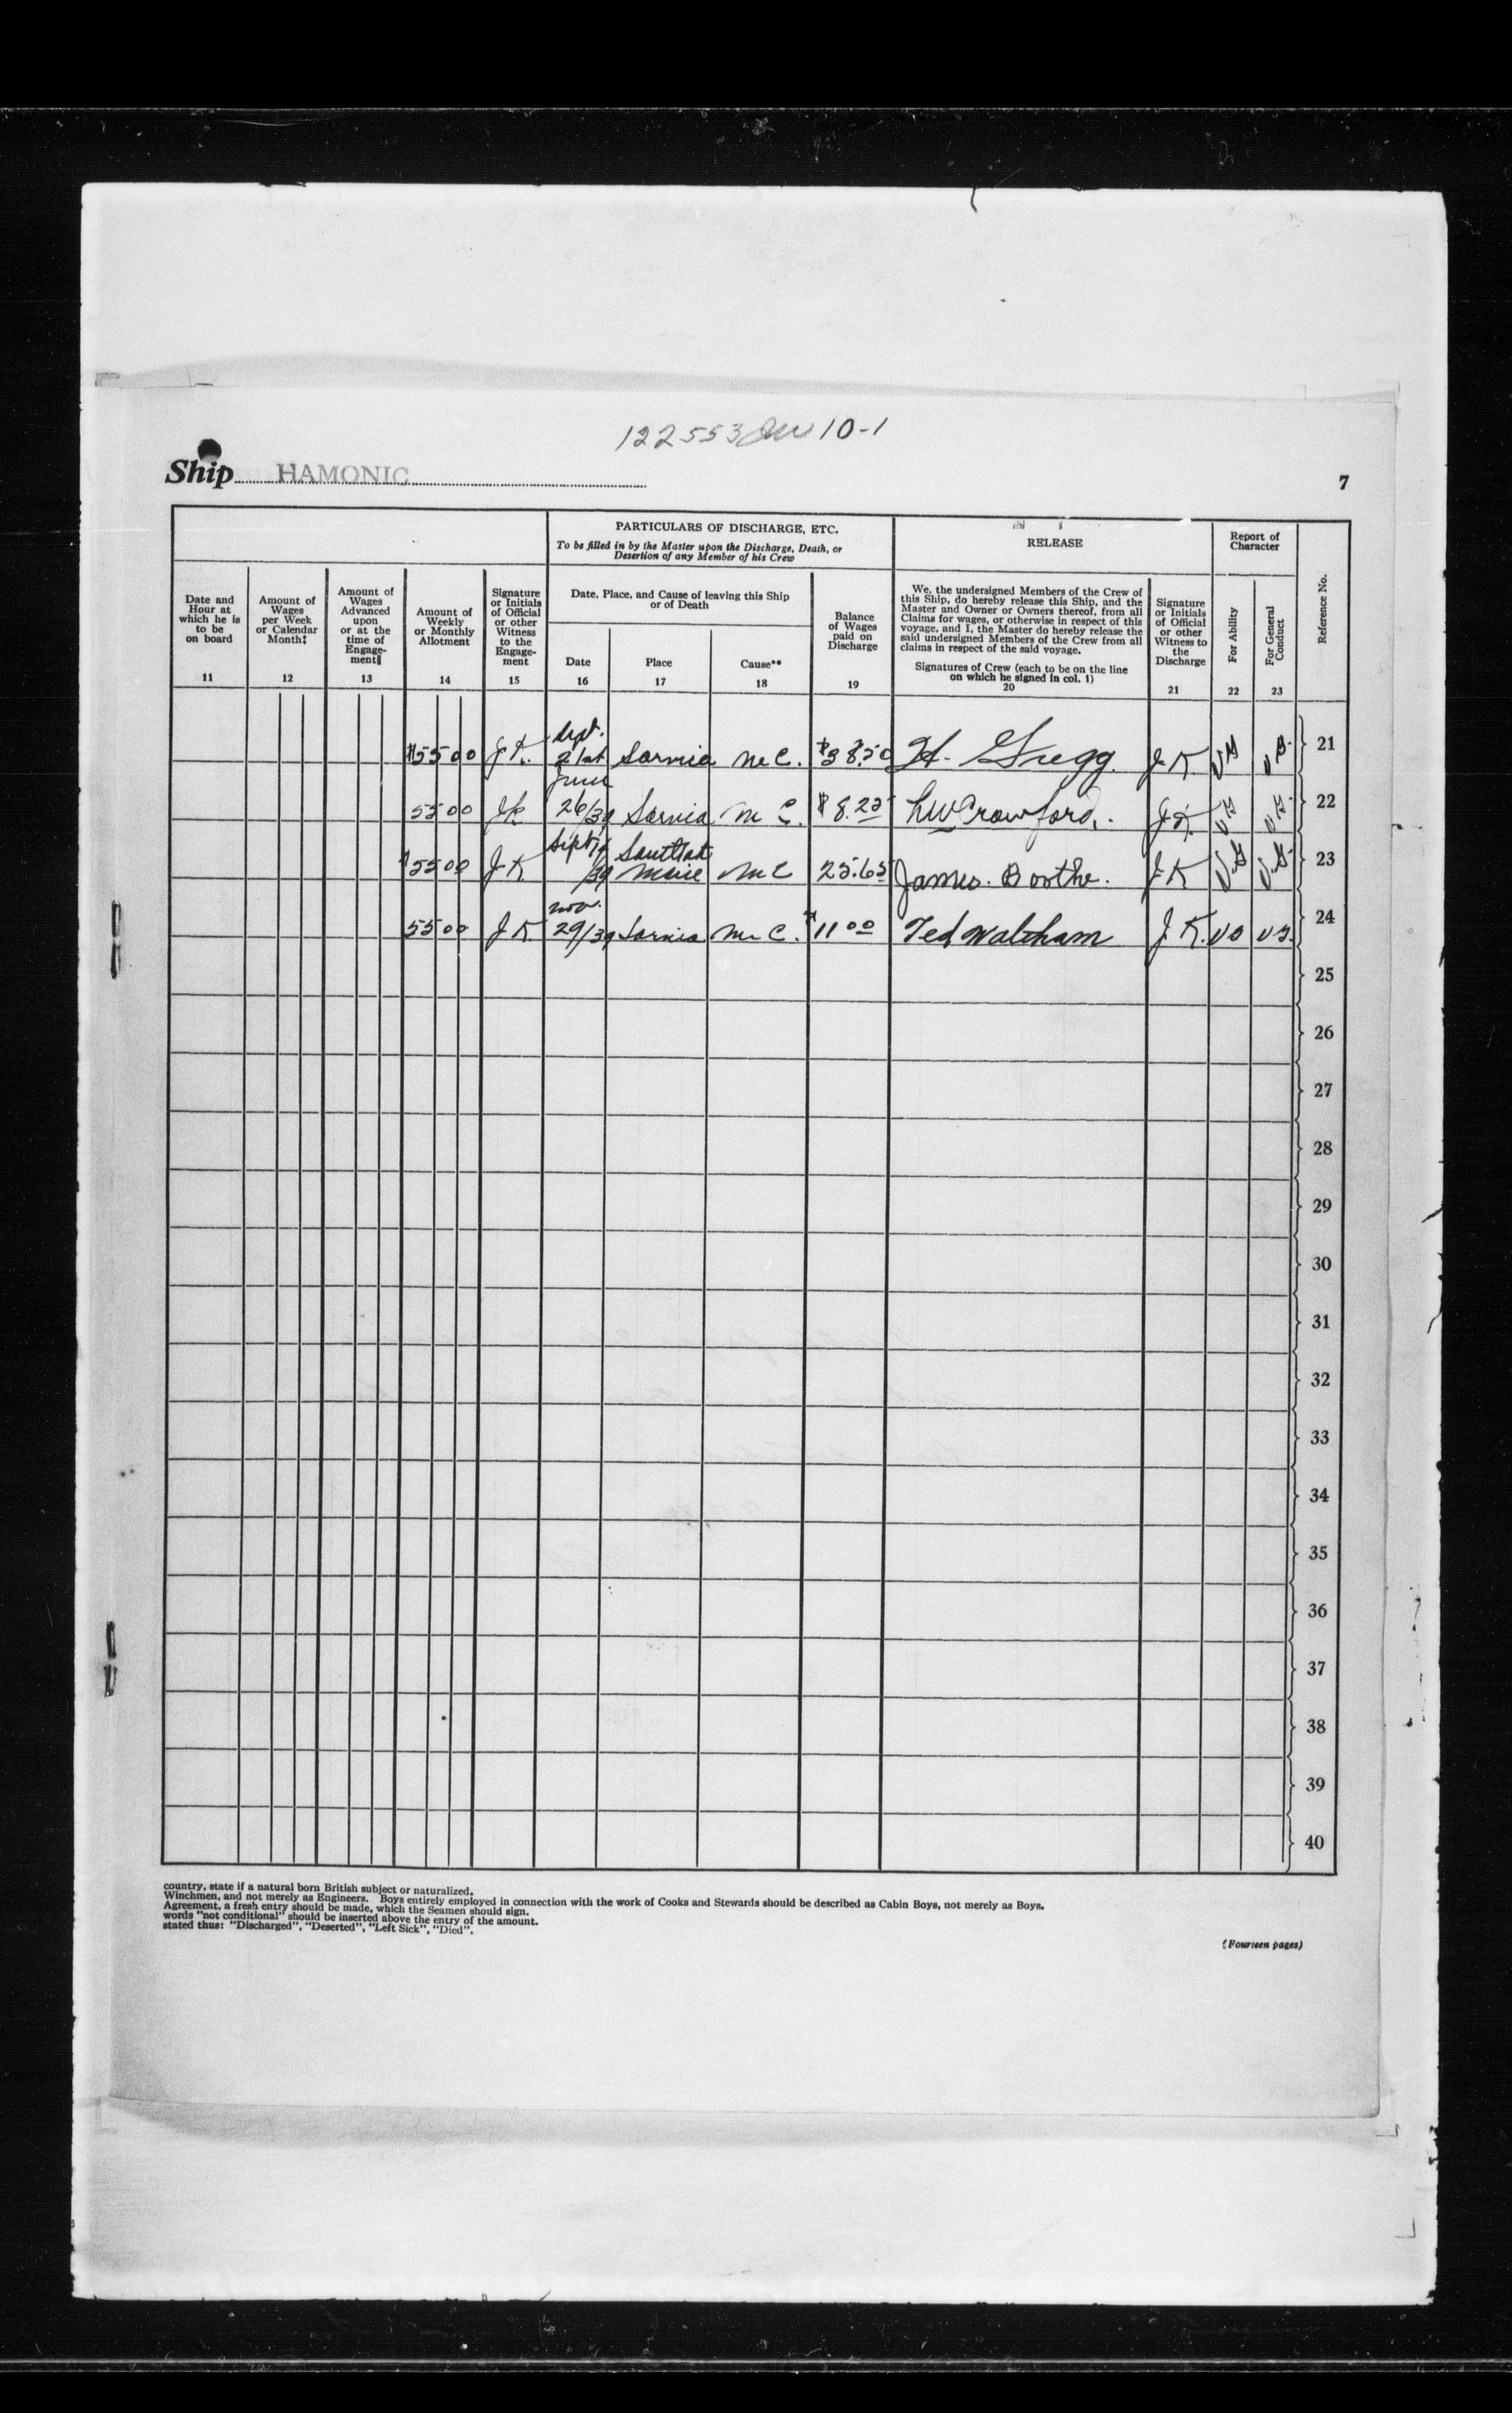 122553 10-1
Ship HAMONIC
7
PARTICULARS OF DISCHARGE, ETC.
To be filled in by the Master upon the Discharge, Death, or
Desertion of any Member of his Crew
RELEASE
Report of
Character
Reference No.
Date and
Hour at
which he is
to be
on board
11
Amount of
Wages
per Week
or Calendar
Month‡
12
Amount of
Wages
Advanced
upon
or at the
time of
Engage-
ment‖
13
Amount of
Weekly
or Monthly
Allotment
14
Signature
or Initials
of Official
or other
Witness
to the
Engage-
ment
15
Date, Place, and Cause of leaving this Ship
or of Death
Date
16
Place
17
Cause**
18
Balance
of Wages
paid on
Discharge
19
We, the undersigned Members of the Crew of
this Ship, do hereby release this Ship, and the
Master and Owner or Owners thereof, from all
Claims for wages, or otherwise in respect of this
voyage, and I, the Master do hereby release the
said undersigned Members of the Crew from all
claims in respect of the said voyage.
Signatures of Crew (each to be on the line
on which he signed in col. 1)
20
Signature
or Initials
of Official
or other
Witness to
the
Discharge
21
For Ability
22
For General
Conduct
23
$55 00 J K. Sept. 21st Sarnia M C. $38.50 H. Gregg. J K VG VG. 21
55 00 JK June 26/39 Sarnia M C. $8.25 LW Crawford. J K. VG VG. 22
$55 00 J K Sept 14/39 Sault Ste Marie M C 25.65 James. Boothe. J K VG VG. 23
55 00 J K. Nov. 29/39 Sarnia M C. $11 00 Ted Waltham J. K. VG VG. 24
25
26
27
28
29
30
31
32
33
34
35
36
37
38
39
40
country, state if a natural born British subject or naturalized.
Winchmen, and not merely as Engineers. Boys entirely employed in connection with the work of Cooks and Stewards should be described as Cabin Boys, not merely as Boys.
Agreement, a fresh entry should be made, which the Seamen should sign.
words "not conditional" should be inserted above the entry of the amount.
stated thus: "Discharged", "Deserted", "Left Sick", "Died".
(Fourteen pages)